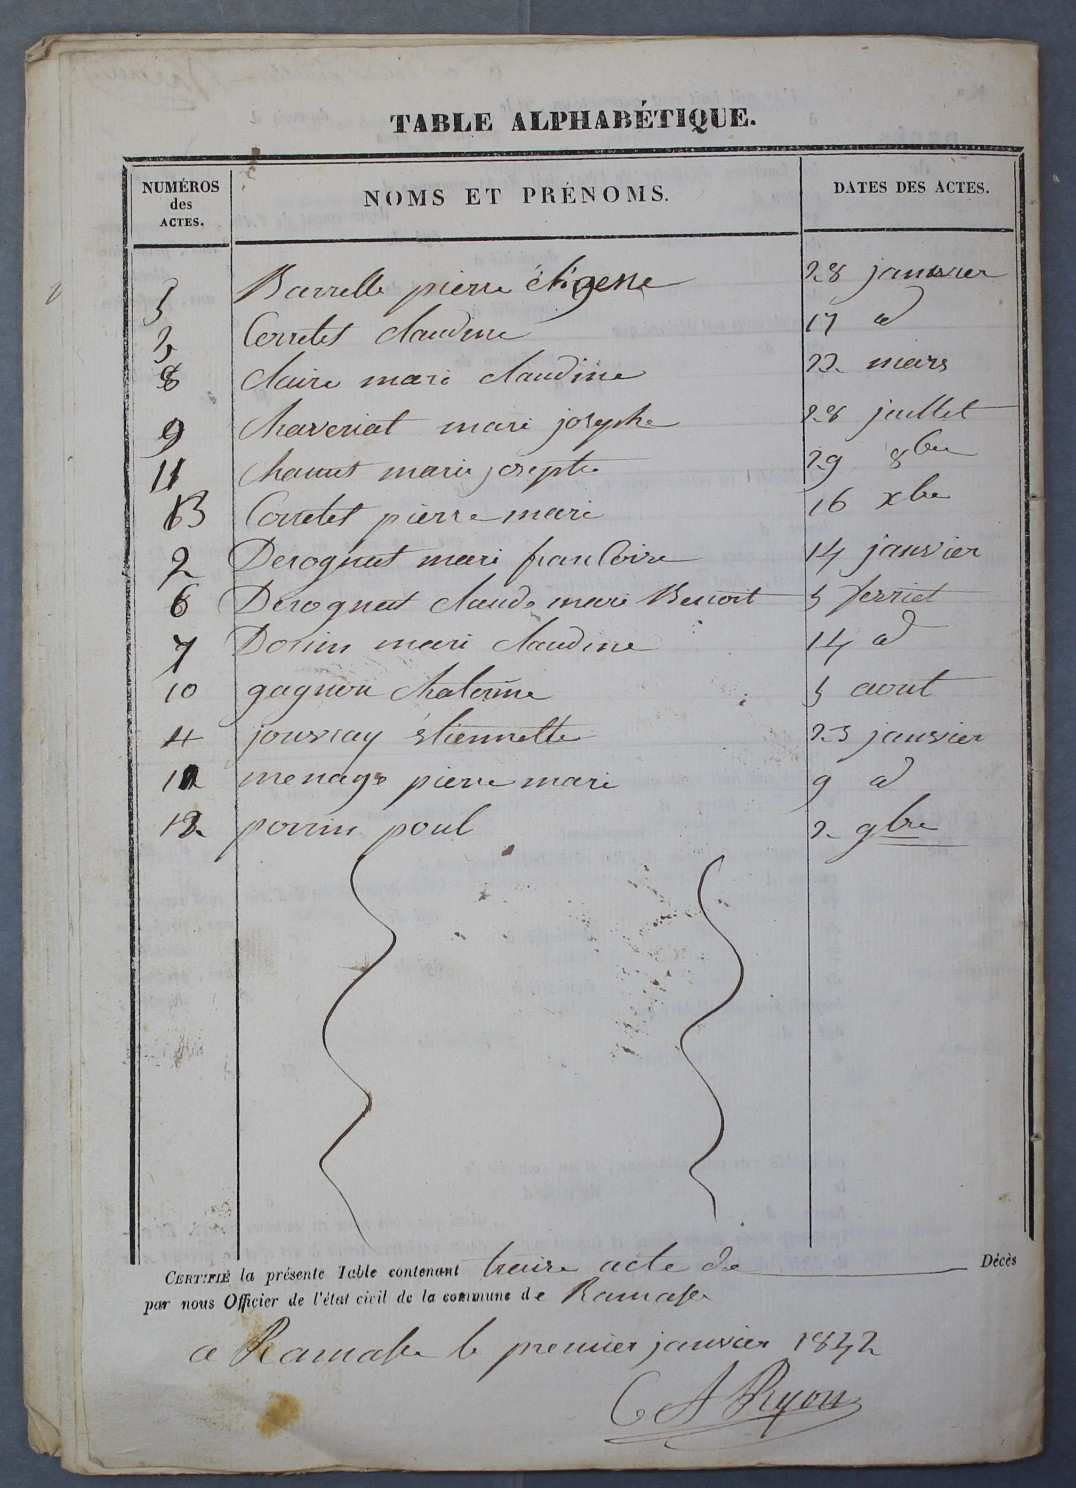 TABLE ALPHABÉTIQUE.
NUMÉROS des ACTES. NOMS ET PRÉNOMS. DATES DES ACTES.
5 Barrelle pierre 28 janvier
3 Corretet claudine 17 d
8 claire marie claudine 22 mars
9 chaveriat mari josephe 28 juillet
11 chanut marie josephte 29 8bre
13 Corretet pierre marie 16 xbre
2 Derognat mari francoise 14 janvier
6 Derognat claude marie Benoit 5 fevriet
7 Donin mari claudine 14 d
10 gagnon chaterine 5 aout
4 jouvray étiennette 23 janvier
1 menage pierre mari 9 d
12 perrin poul 2 9bre
CERTIFIÉ la présente Table contenant treize acte de Décès
par nous Officier de l'état civil de la commune de Ramasse
a Ramasse le premier janvier 1842
C A Ryon